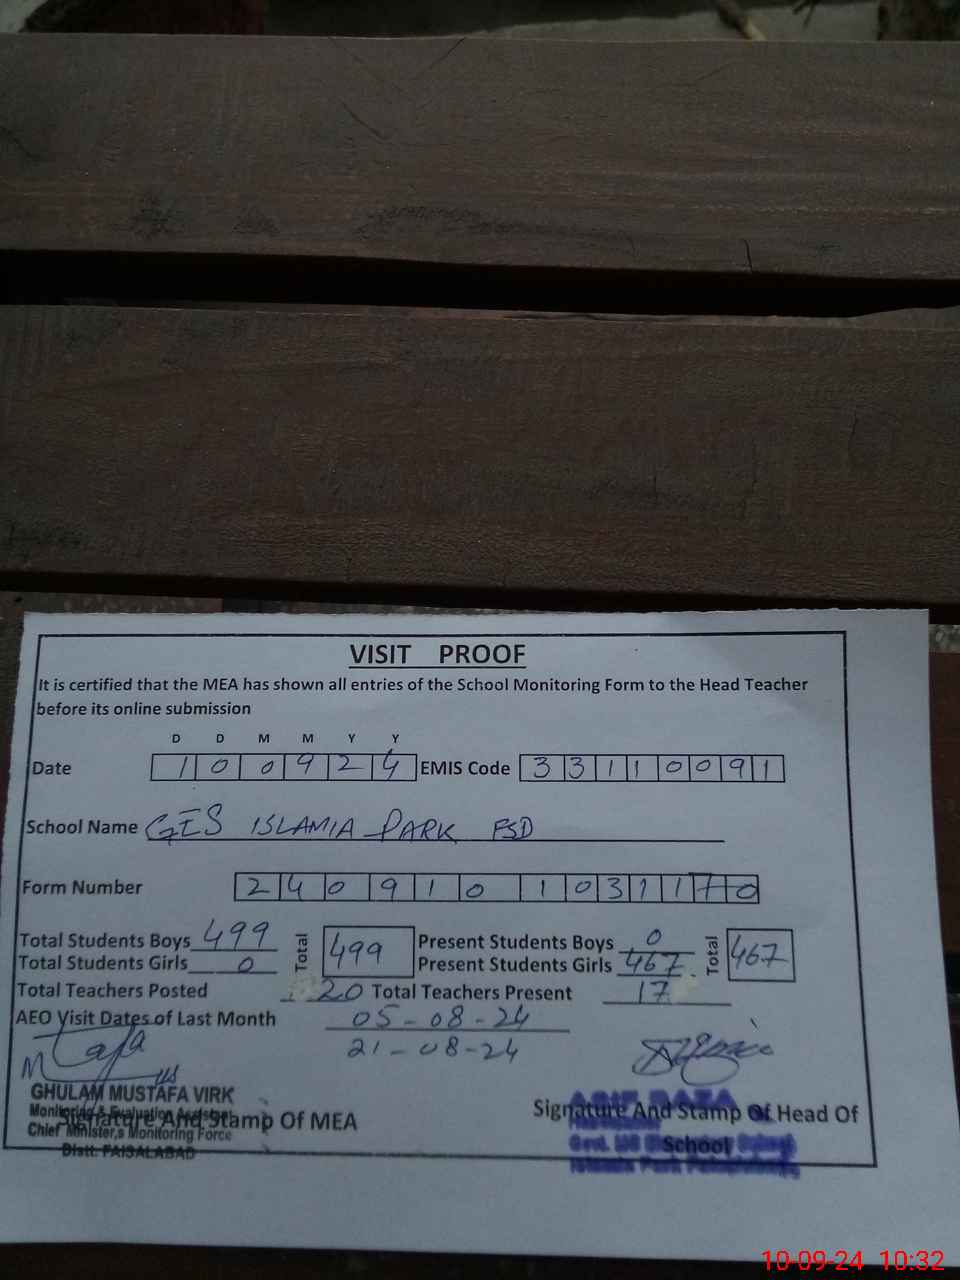 VISIT PROOF
It is certified that the MEA has shown all entries of the School Monitoring Form to the Head Teacher
before its online submission
D D M M Y Y
Date 1 0 0 9 2 4 EMIS Code 3 3 1 1 0 0 9 1
School Name GES ISLAMIA PARK FSD
Form Number 2 4 0 9 1 0 1 0 3 1 1 7 0
Total Students Boys 499 Total 499 Present Students Boys 0 Total 467
Total Students Girls 0 Present Students Girls 467
Total Teachers Posted 20 Total Teachers Present 17
AEO Visit Dates of Last Month 05-08-24
21-08-24
GHULAM MUSTAFA VIRK
Monitoring & Evaluation Assistant
Signature And Stamp Of MEA
Chief Minister,s Monitoring Force
Distt. FAISALABAD
ASIF RAZA
Signature And Stamp Of Head Of
School
Govt.
Islamia Park
10-09-24 10:32